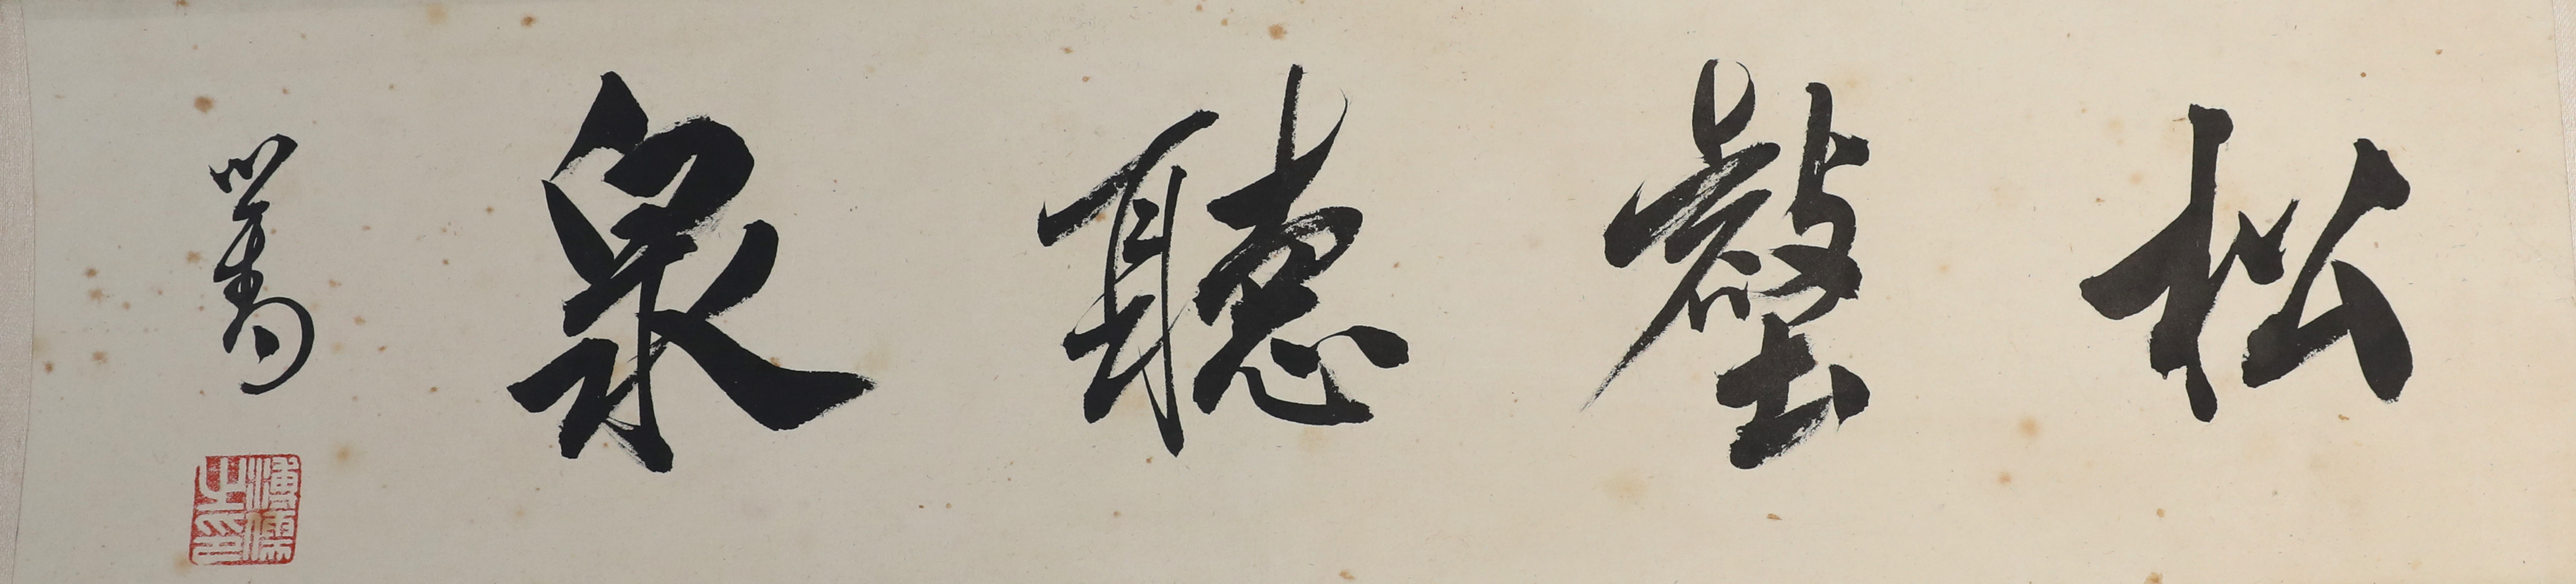 松壑聽泉
心畬
溥儒之印